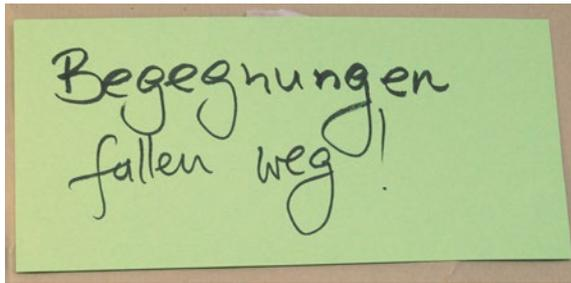 Begegnungen
fallen weg!